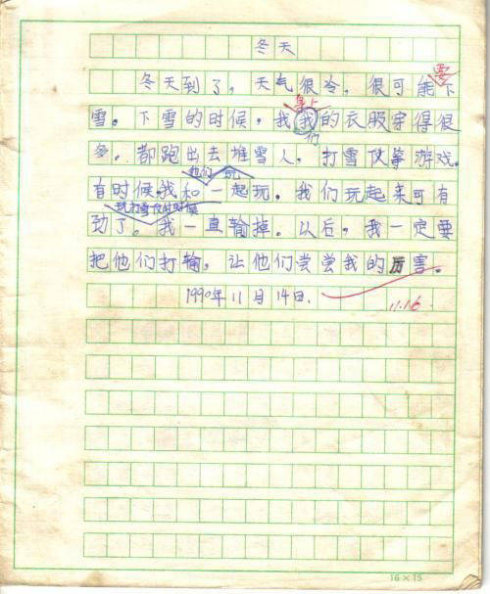 冬天
冬天到了，天气很冷，很可能要下
雪。下雪的时候，我身上我们的衣服穿得很
多。都跑出去堆雪人，打雪仗等游戏。
有时候我和他们一起玩。我们玩起来可有
劲了。我一直输掉。以后，我一定要
把他们打输，让他们尝尝我的厉害。
1990年11月14日.
11.16
16×15